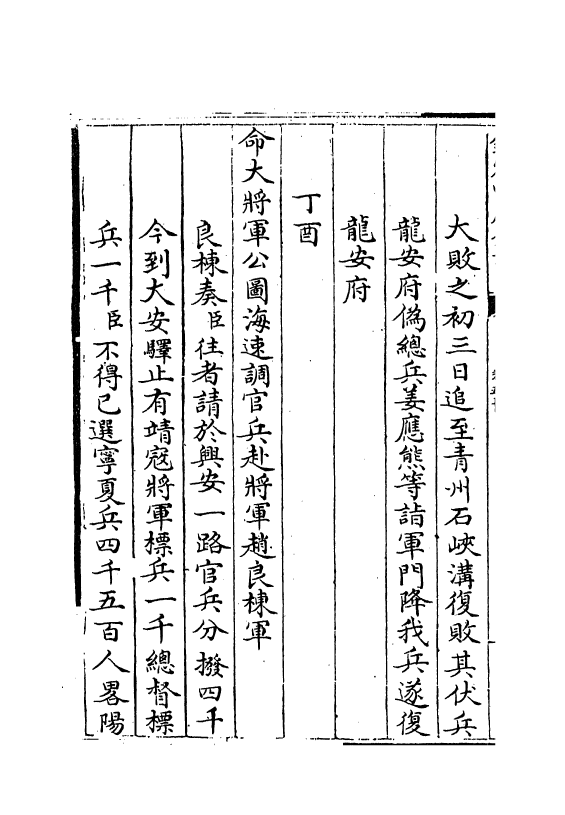 大敗之初三日追至青州石峽溝復敗其伏兵
龍安府偽總兵姜應熊等詣軍門降我兵遂復
龍安府
丁酉
命大將軍公圖海速調官兵赴將軍趙良棟軍
良棟奏臣往者請於興安一路官兵分撥四千
今到大安驛止有靖寇將軍標兵一千總督標
兵一千臣不得已選寧夏兵四千五百人畧陽